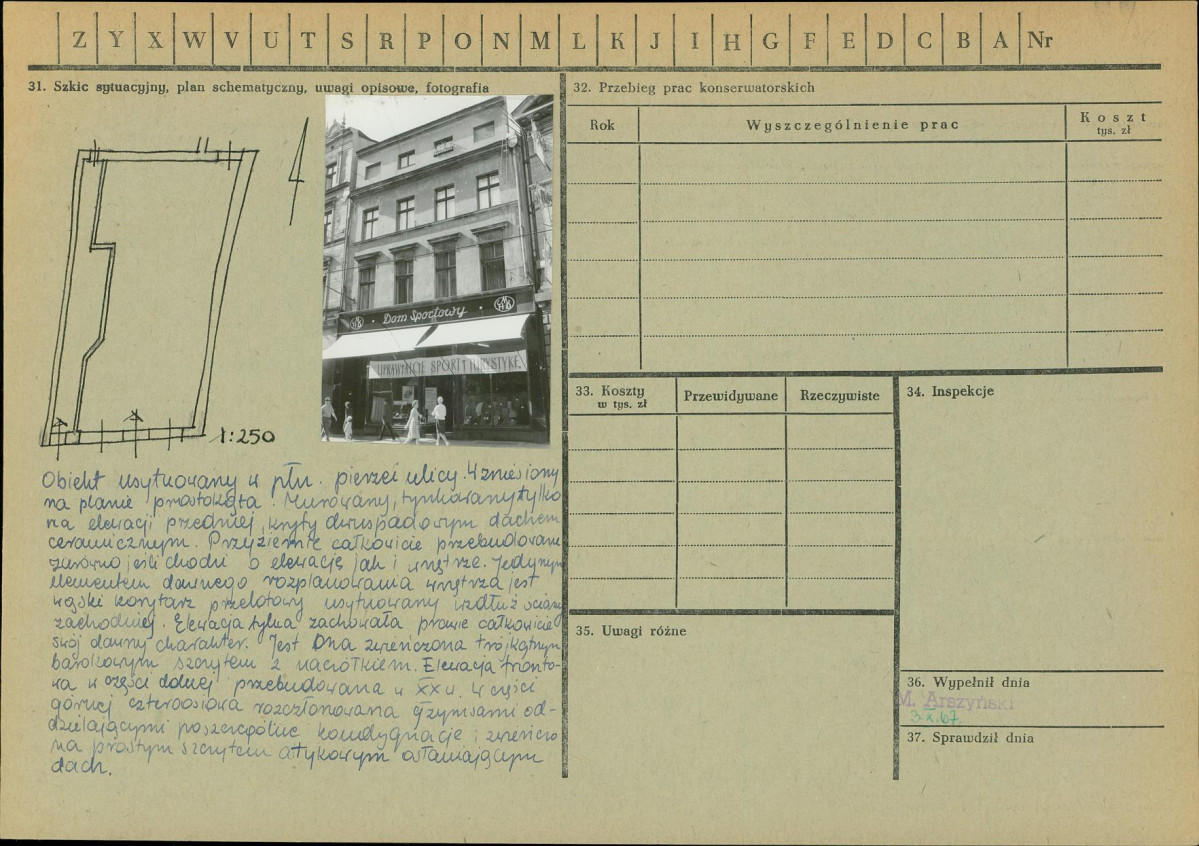 Z Y X W V U T S R P O N M L K J I H G F E D C B A Nr
31. Szkic sytuacyjny, plan schematyczny, uwagi opisowe, fotografia
Dom Sportowy
UPRAWIAJCIE SPORT I TURYSTYKĘ
1:250
Obiekt usytuowany w płn. pierzei ulicy. Wzniesiony
na planie prostokąta. Murowany, tynkowany tylko
na elewacji przedniej, kryty dwuspadowym dachem
ceramicznym. Przyziemie całkowicie przebudowane
zarówno jeśli chodzi o elewację jak i wnętrze. Jedynym
elementem dawnego rozplanowania wnętrza jest
wąski korytarz przelotowy usytuowany wzdłuż ściany
zachodniej. Elewacja tylna zachowała prawie całkowicie
swój dawny charakter. Jest ona zwieńczona trójkątnym
barokowym szczytem z naczółkiem. Elewacja fronto-
wa w części dolnej przebudowana w XX w. W części
górnej czteroosiowa rozczłonowana gzymsami od-
dzielającymi poszczególne kondygnacje i zwieńczo
na prostym szczytem attykowym osłaniającym
dach.
32. Przebieg prac konserwatorskich
Rok Wyszczególnienie prac Koszt
tys. zł
33. Koszty
w tys. zł
Przewidywane Rzeczywiste
34. Inspekcje
35. Uwagi różne
36. Wypełnił dnia
M. Arszyński
3.X.67.
37. Sprawdził dnia